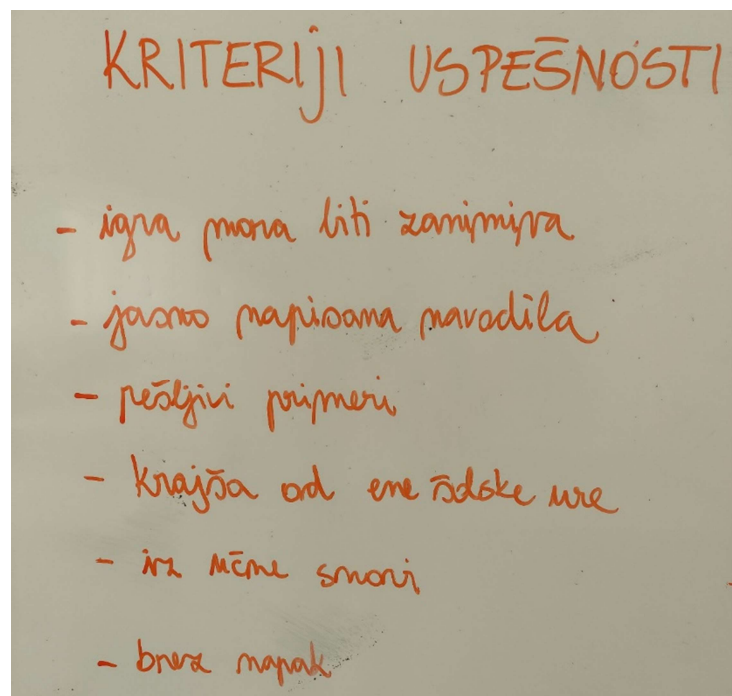 KRITERIJI USPEŠNOSTI
- igra mora biti zanimiva
- jasno napisana navodila
- rešljivi primeri
- krajša od ene šolske ure
- iz učne snovi
- brez napak